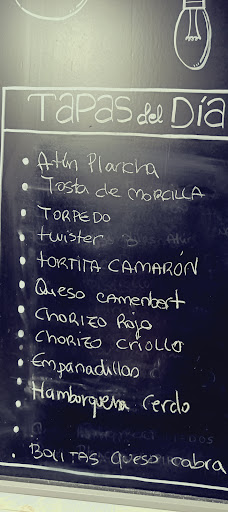 TAPAS del Día
• Atún Plancha
• Tosta de MORCILLA
• TORPEDO
• twister
• tORtita CAMARÓN
• Queso camembert
• CHORIZO Rojo
• CHORIZO CRiollo
• Empanadillas
• Hamborguesa Cerdo
•
• BOLITAS queso cabra